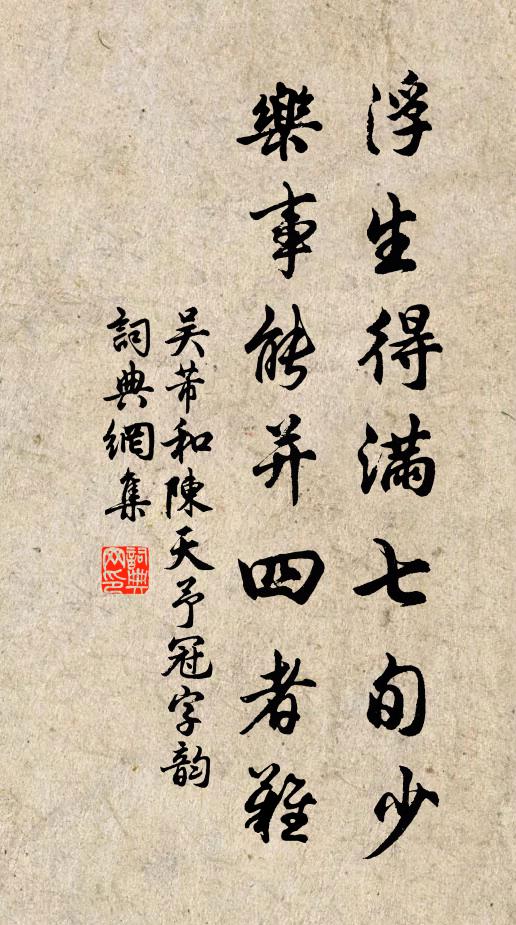 浮生得满七旬少
樂事能并四者難
吴芾和陳天予冠字韵
詞典網集
詞典网印